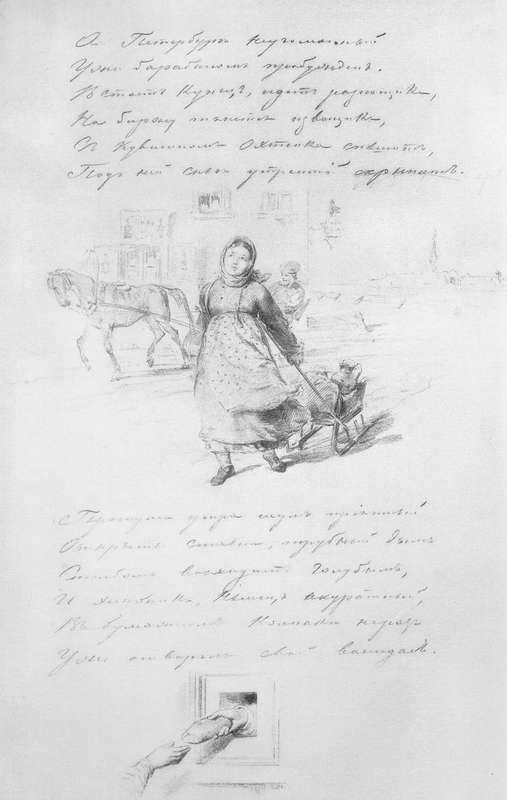 А Петербургъ неугомонный
Ужъ барабаномъ пробужденъ.
Встаетъ Купецъ, идетъ разнощикъ,
На биржу тянется извощикъ,
Съ Кувшиномъ Охтенка спѣшитъ,
Подъ ней снѣгъ утренній скрыпитъ.
Проснулся утра шумъ пріятный
Открыты ставни, трубный дымъ
Столбомъ восходитъ голубымъ,
И хлѣбникъ, Нѣмецъ акуратный,
Въ бумажномъ Колпакѣ не разъ
Ужъ отворялъ свой васисдасъ.